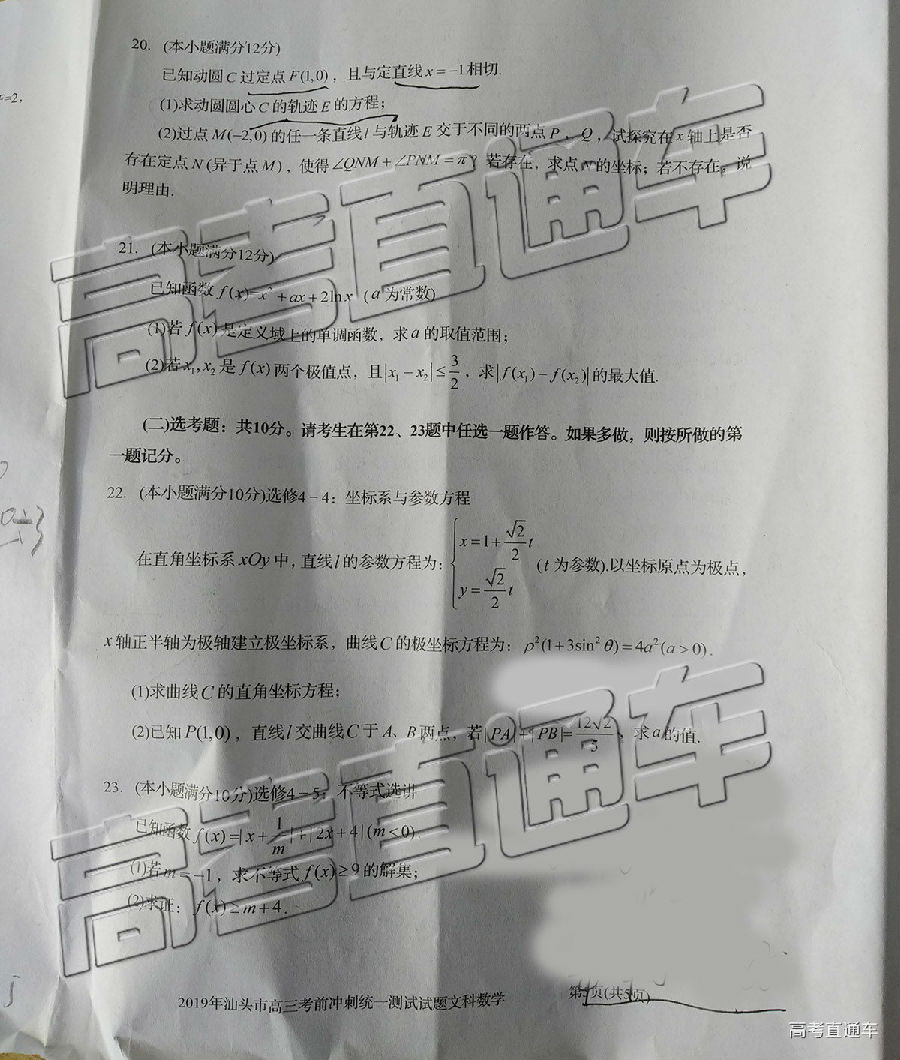 20. (本小题满分12分)
已知动圆C过定点F(1,0)，且与定直线x=-1相切.
(1)求动圆圆心C的轨迹E的方程；
(2)过点M(-2,0)的任一条直线l与轨迹E交于不同的两点P、Q，试探究在x轴上是否
存在定点N(异于点M)，使得∠QNM+∠PNM=π？若存在，求点N的坐标；若不存在，说
明理由.
21. (本小题满分12分)
已知函数f(x)=x²+ax+2lnx (a为常数)
(1)若f(x)是定义域上的单调函数，求a的取值范围；
(2)若x₁,x₂是f(x)两个极值点，且|x₁-x₂|≤3/2，求|f(x₁)-f(x₂)|的最大值.
(二)选考题：共10分。请考生在第22、23题中任选一题作答。如果多做，则按所做的第
一题记分。
22. (本小题满分10分)选修4-4：坐标系与参数方程
在直角坐标系xOy中，直线l的参数方程为：{x=1+√2/2 t, y=√2/2 t (t为参数).以坐标原点为极点，
x轴正半轴为极轴建立极坐标系，曲线C的极坐标方程为：ρ²(1+3sin²θ)=4a²(a>0).
(1)求曲线C的直角坐标方程；
(2)已知P(1,0)，直线l交曲线C于A、B两点，若|PA|+|PB|=12√2/5，求a的值.
23. (本小题满分10分)选修4-5：不等式选讲
已知函数f(x)=|x+1/m|+|2x+4|(m<0).
(1)若m=-1，求不等式f(x)≥9的解集；
(2)求证：f(x)≥m+4.
2019年汕头市高三考前冲刺统一测试试题文科数学 第5页(共5页)
高考直通车
高考直通车
高考直通车